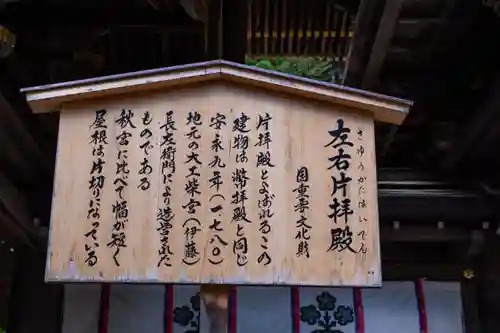 左右片拝殿
さゆうかたはいでん
国重要文化財
片拝殿とよばれるこの
建物は幣拝殿と同じ
安永九年(一七八〇)
地元の大工柴宮(伊藤)
長左衛門により造営された
ものである
秋宮に比べて幅が短く
屋根は片切になっている